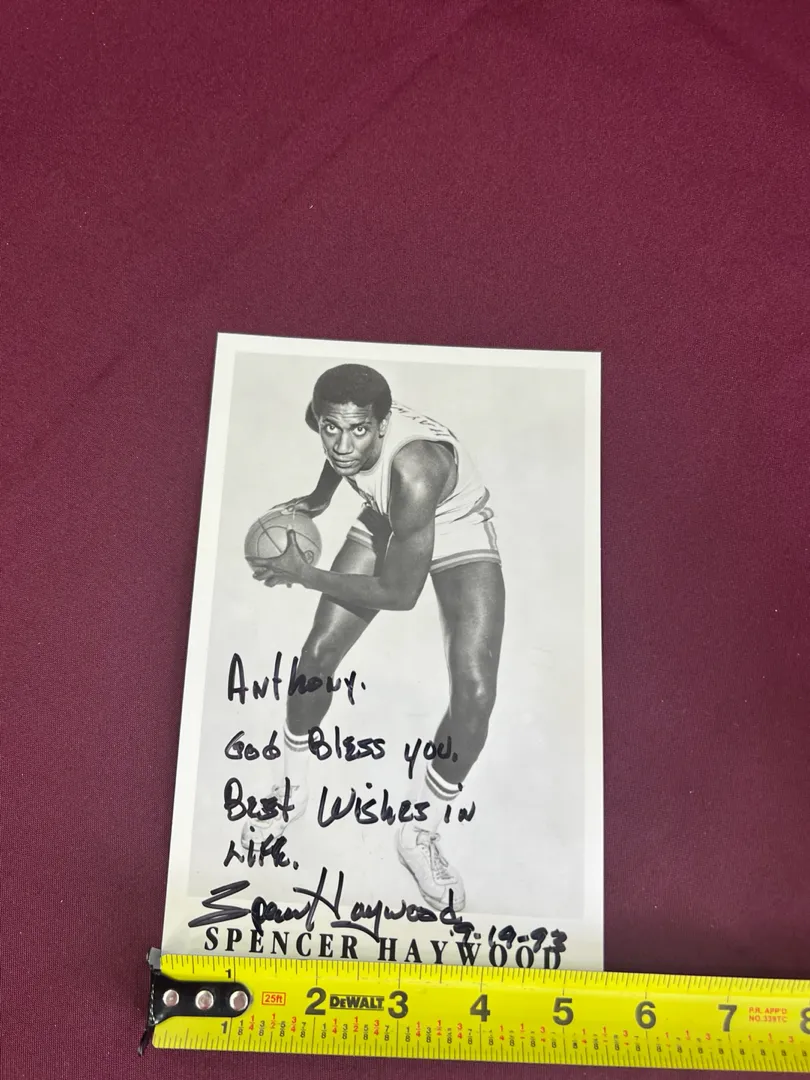 Anthony.
God Bless you.
Best Wishes in
Life.
Spencer Haywood
9-19-93
SPENCER HAYWOOD
1 25ft 2 DEWALT 3 4 5 6 7 8
P.R. APP'D
NO.339TC
1